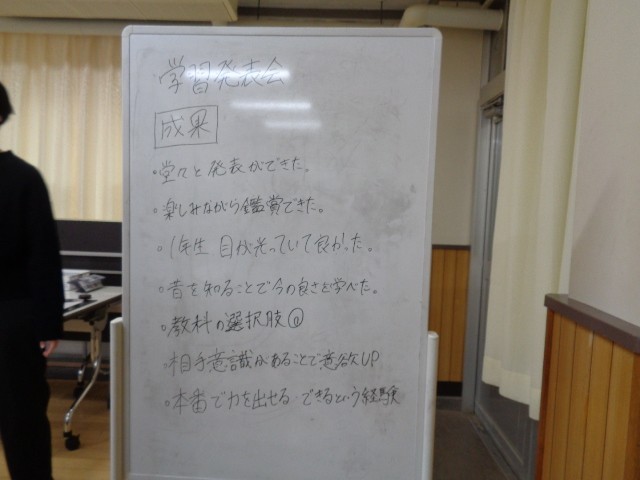 ・学習発表会
成果
・堂々と発表ができた。
・楽しみながら鑑賞できた。
・1年生 目が光っていて良かった。
・昔を知ることで今の良さを学べた。
・教科の選択肢
・相手意識があることで意欲UP
・本番で力を出せる・できるという経験